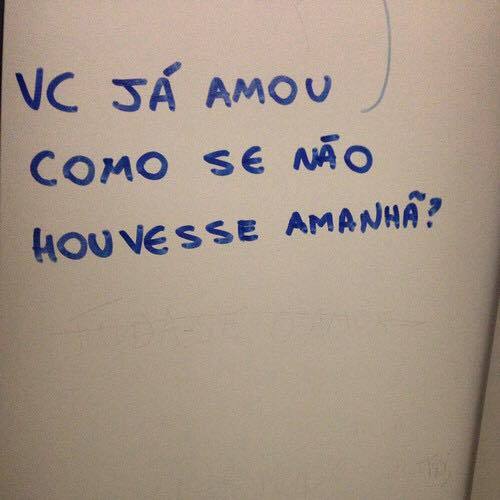 VC JÁ AMOU
COMO SE NÃO
HOUVESSE AMANHÃ?